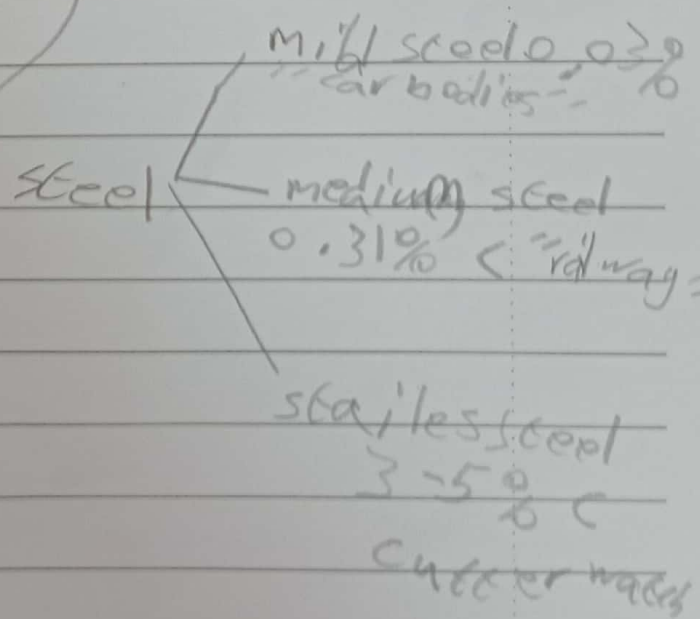 mild steel 0.03%
"car bodies"
steel
medium steel
0.31% C "railway"
stailes steel
3-5% C
cutter